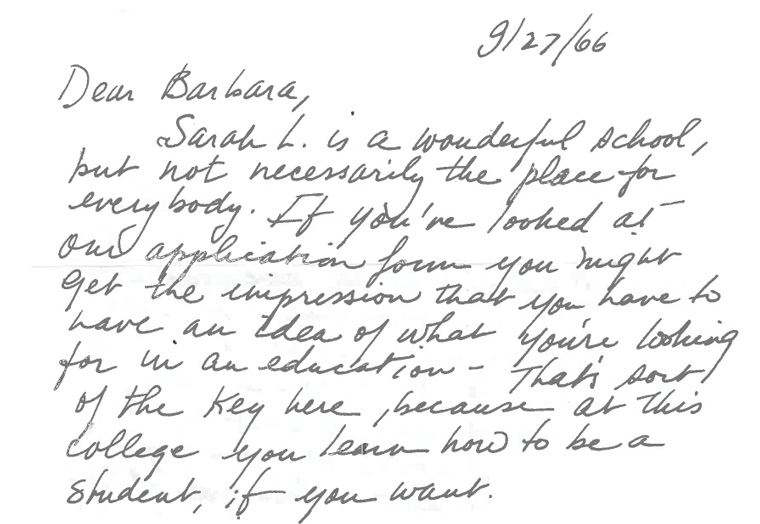 9/27/66
Dear Barbara,
Sarah L. is a wonderful school,
but not necessarily the place for
everybody. If you've looked at
our application form you might
get the impression that you have to
have an idea of what you're looking
for in an education - That's sort
of the key here, because at this
college you learn how to be a
student, if you want.